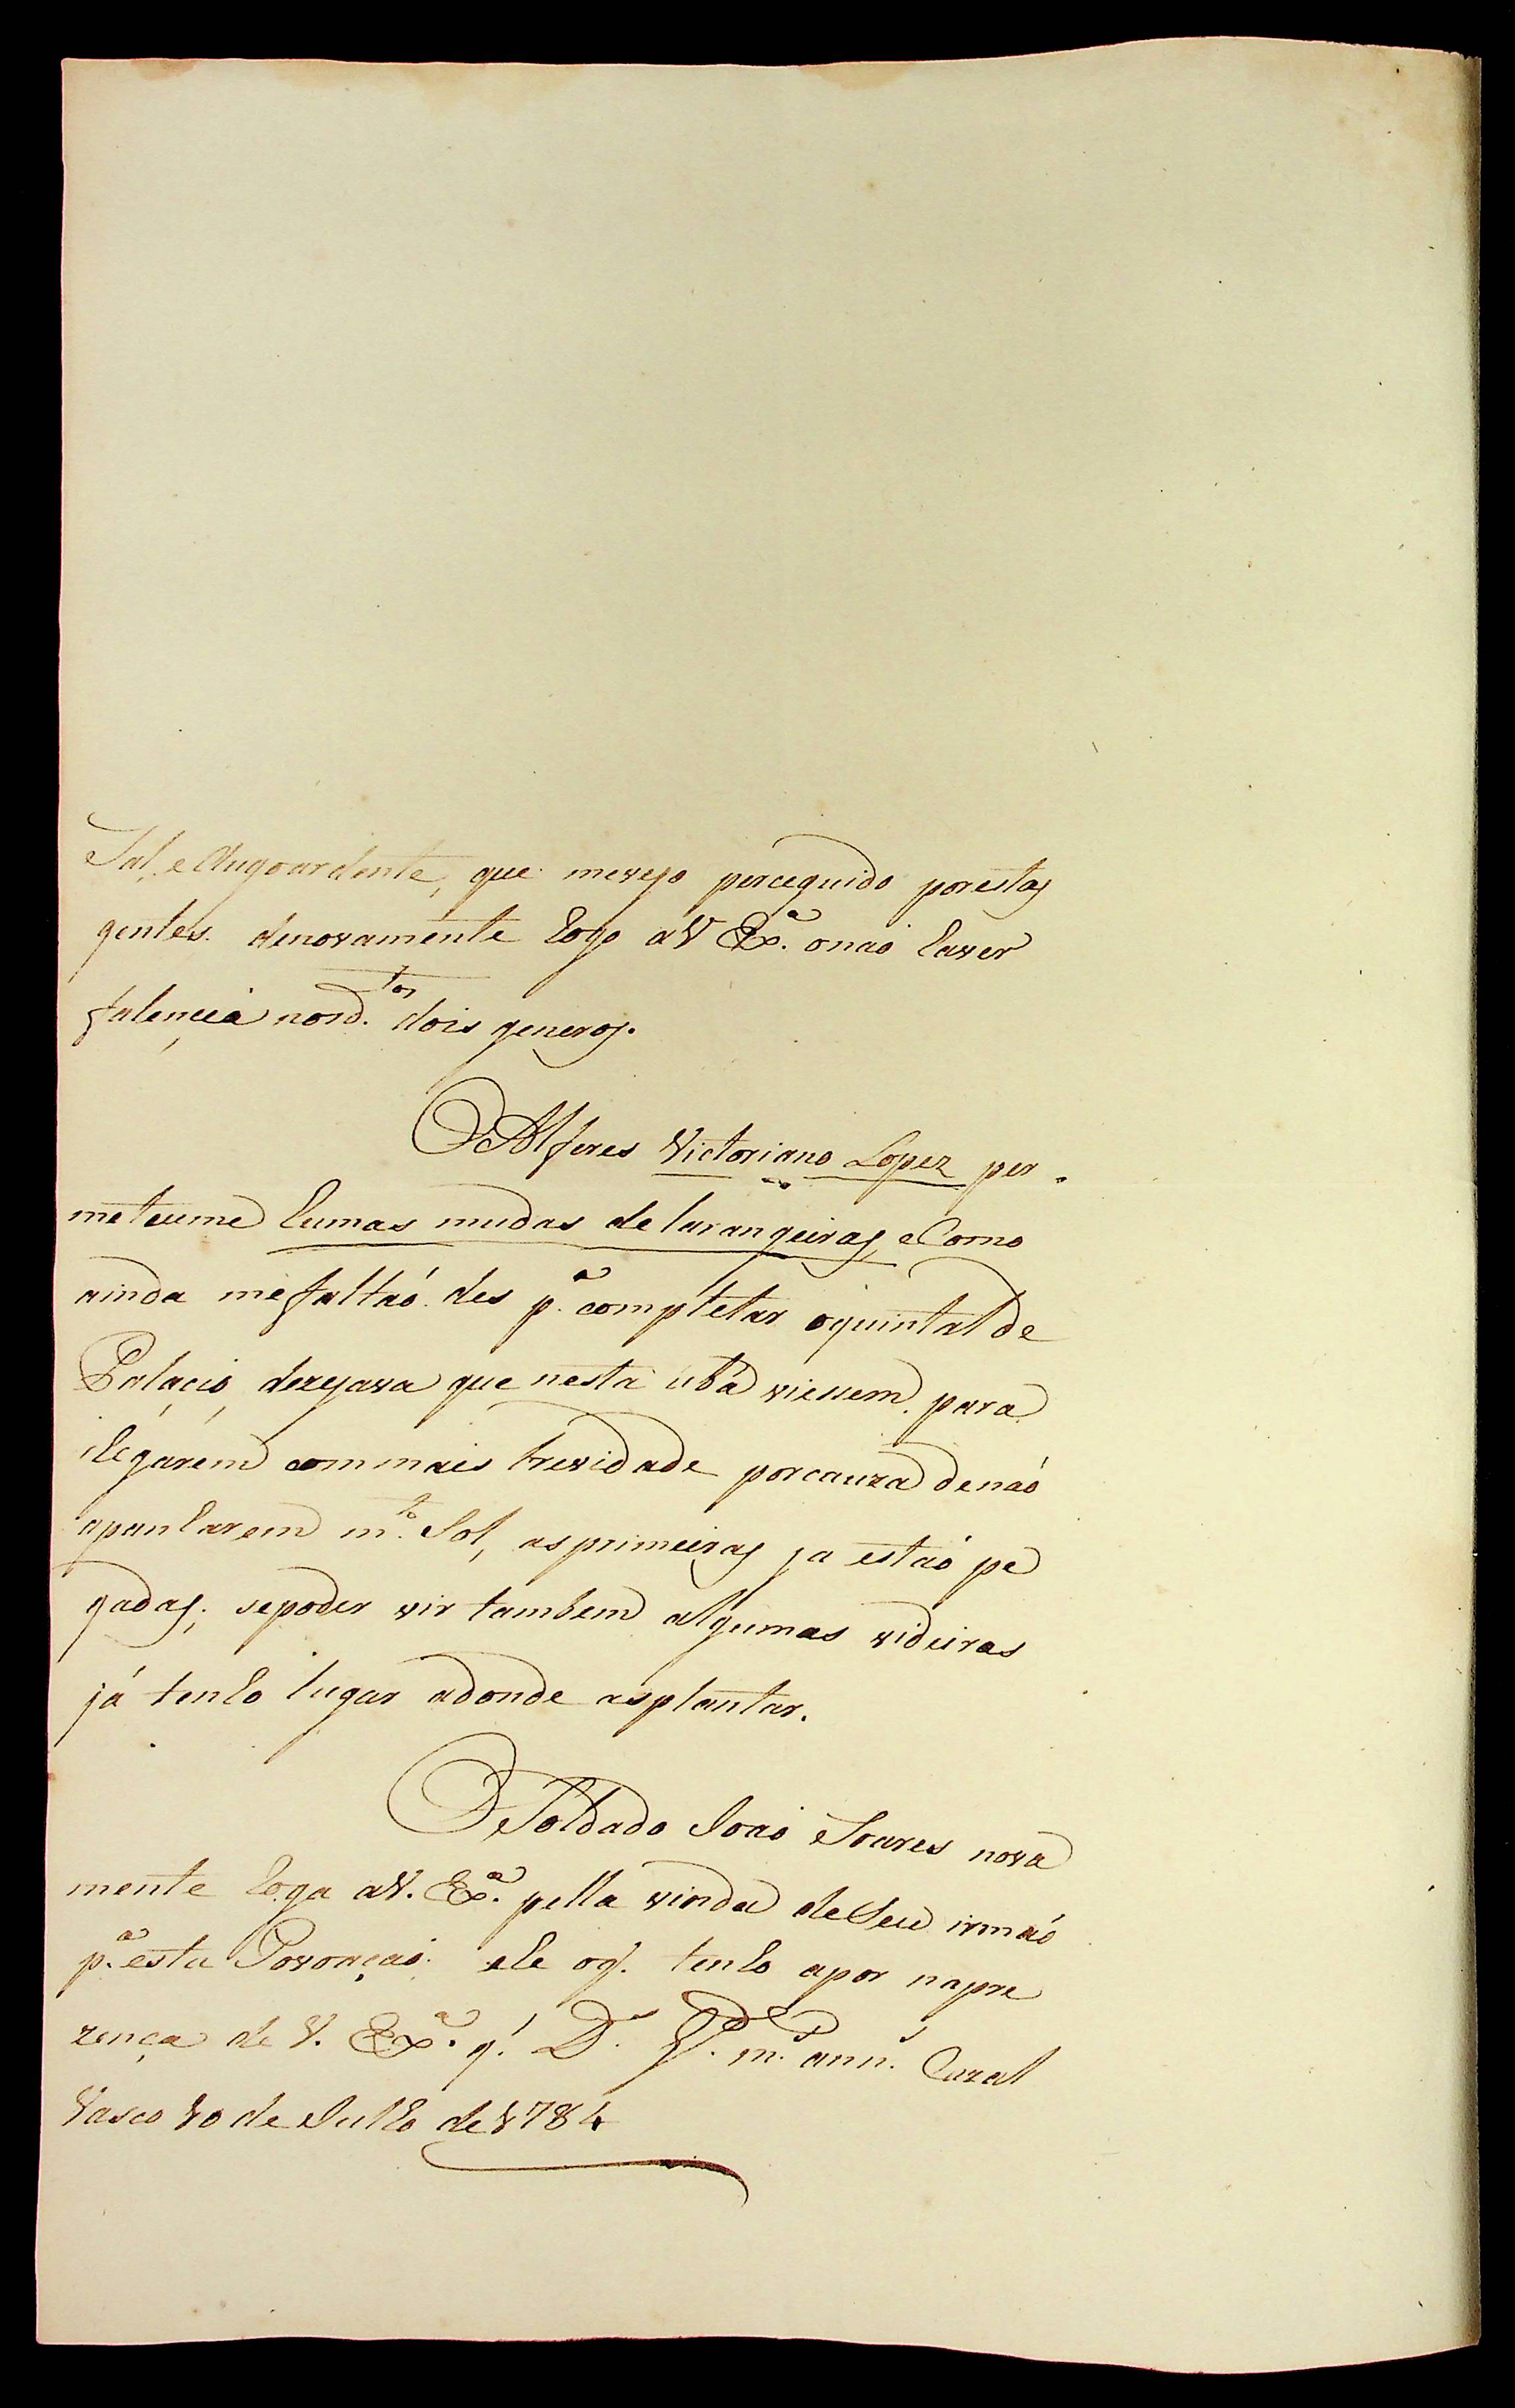 Sal, e Augoardente, que mevejo perceguido porestas
gentes. denovamente Rogo aV Ex.ª onaõ haver
falencia nosd.tos dois generos.
O Alferes Victoriano Lopez per-
meteume humas mudas de larangeiras, eComo
ainda mefaltaõ des p.ª completar oquintal de
Palacio, dezejava que nesta ubá viessem para
chegarem commais brevidade porcauza denaõ
apanharem m.to Sol, asprimeiras ja estaõ pe
gadas; sepoder vir tambem algumas videiras
já tenho lugar adonde asplantar.
O Soldado Joaõ Soares nova
mente Roga aV. Ex.ª pella vinda deSeu irmaõ
p.ª esta Povoaçaõ. ele oq. tenho apor napre
zença de V. Ex.ª q. D.s G. m.s ann.s Cazal
Vasco 10 de Julho de 1784